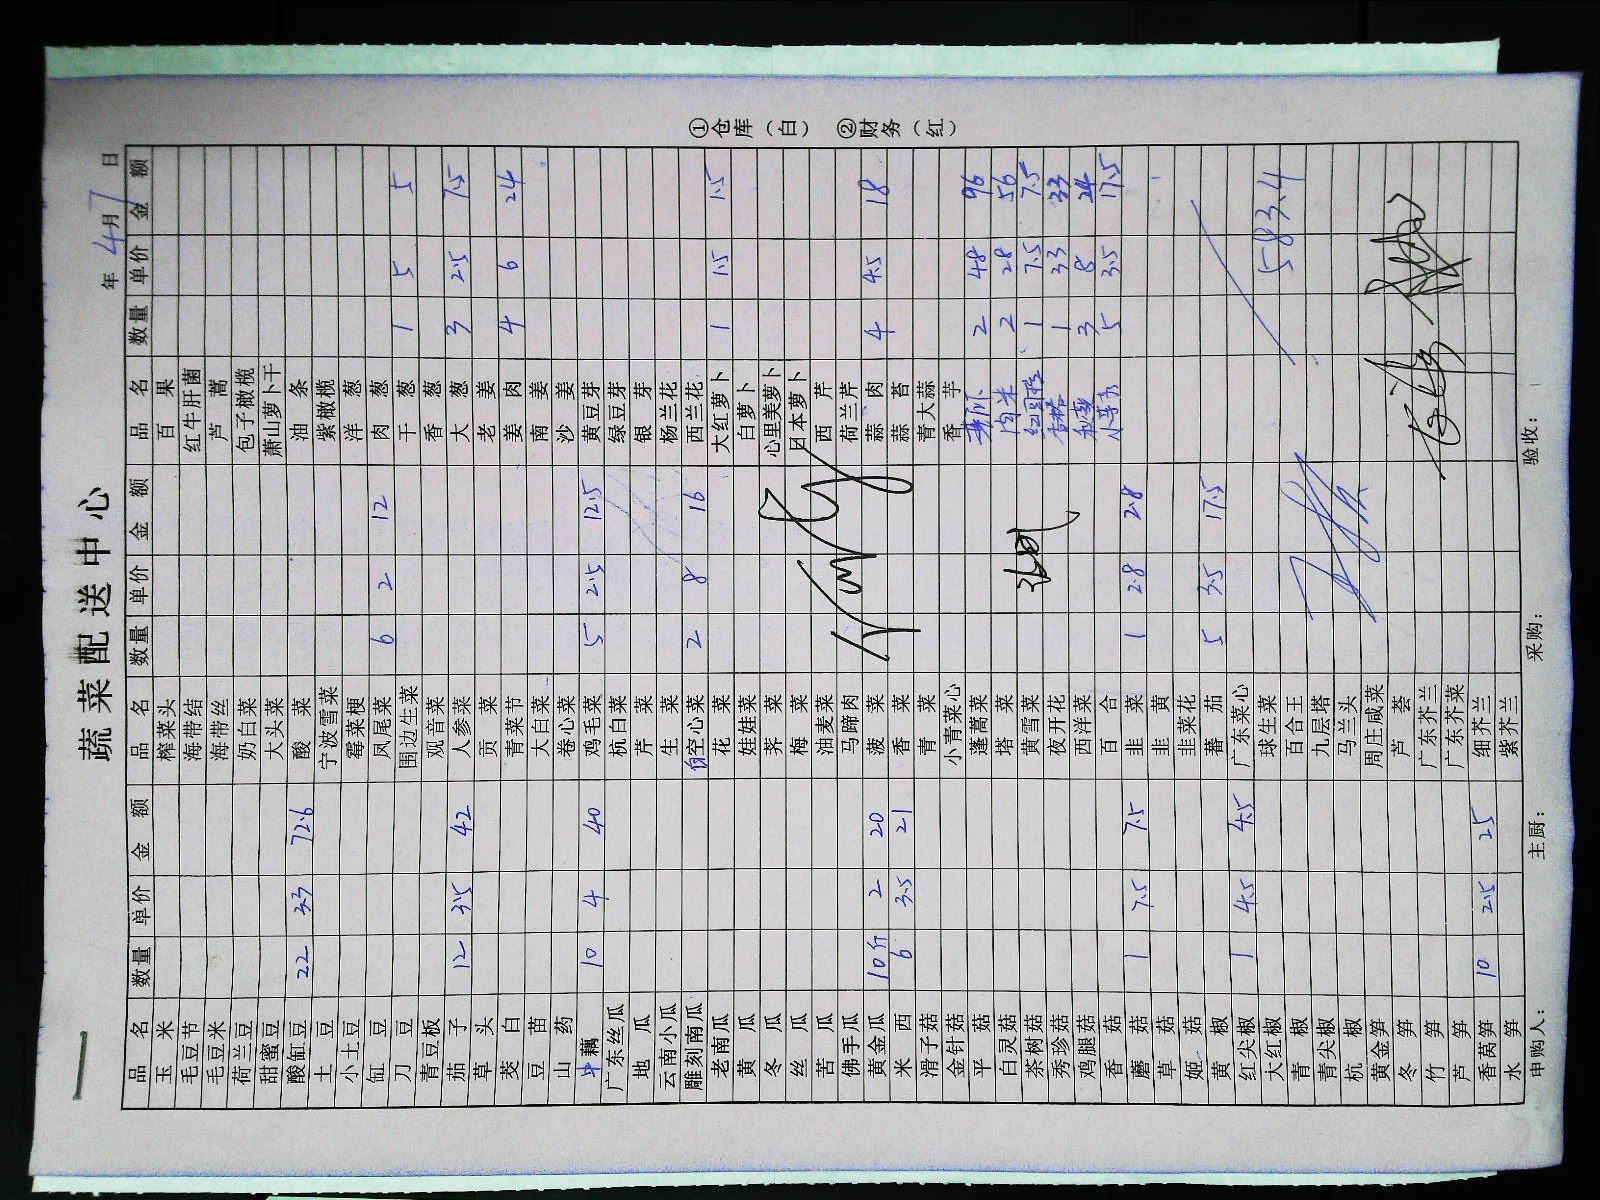 蔬菜配送中心
年 4月 7日
品名 数量 单价 金额 品名 数量 单价 金额 品名 数量 单价 金额
玉米 榨菜头 百果
毛豆节 海带结 红牛肝菌
毛豆米 海带丝 芦蒿
荷兰豆 奶白菜 包子橄榄
甜蜜豆 大头菜 萧山萝卜干
酸缸豆 22 3.3 72.6 酸菜 油条
土豆 宁波雪菜 紫橄榄
小土豆 霉菜梗 洋葱
缸豆 凤尾菜 6 2 12 肉葱
刀豆 围边生菜 干葱 1 5 5
青豆板 观音菜 香葱
茄子 12 3.5 42 人参菜 大葱 3 2.5 7.5
草头 贡菜 老姜
茭白 青菜节 姜肉 4 6 24
豆苗 大白菜 南姜
山药 卷心菜 沙姜
中藕 10 4 40 鸡毛菜 5 2.5 12.5 黄豆芽
广东丝瓜 杭白菜 绿豆芽
地瓜 芹菜 银芽
云南小瓜 生菜 杨兰花
雕刻南瓜 空心菜 2 8 16 西兰花
老南瓜 花菜 大红萝卜 1 1.5 1.5
黄瓜 娃娃菜 白萝卜
冬瓜 荠菜 心里美萝卜
丝瓜 梅菜 日本萝卜
苦瓜 油麦菜 西芹
佛手瓜 马蹄肉 荷兰芹
黄金瓜 10斤 2 20 菠菜 蒜肉 4 4.5 18
米西 6 3.5 21 香菜 蒜苔
滑子菇 青菜 青大蒜
金针菇 小青菜心 香芋
平菇 蓬蒿菜 2 48 96
白灵菇 塔菜 肉米 2 28 56
茶树菇 黄雪菜 1 7.5 7.5
秀珍菇 夜开花 1 33 33
鸡腿菇 西洋菜 3 8 24
香菇 百合 5 3.5 17.5
蘑菇 1 7.5 7.5 韭菜 1 2.8 2.8
草菇 韭黄
姬菇 韭菜花
黄椒 蕃茄 5 3.5 17.5
红尖椒 1 4.5 4.5 广东菜心
大红椒 球生菜 583.4
青椒 百合王
青尖椒 九层塔
杭椒 马兰头
黄金笋 周庄咸菜
冬笋 芦荟
竹笋 广东芥兰
芦笋 广东芥菜
香莴笋 10 2.5 25 细芥兰
水笋 紫芥兰
申购人： 主厨： 采购： 验收：
①仓库（白） ②财务（红）